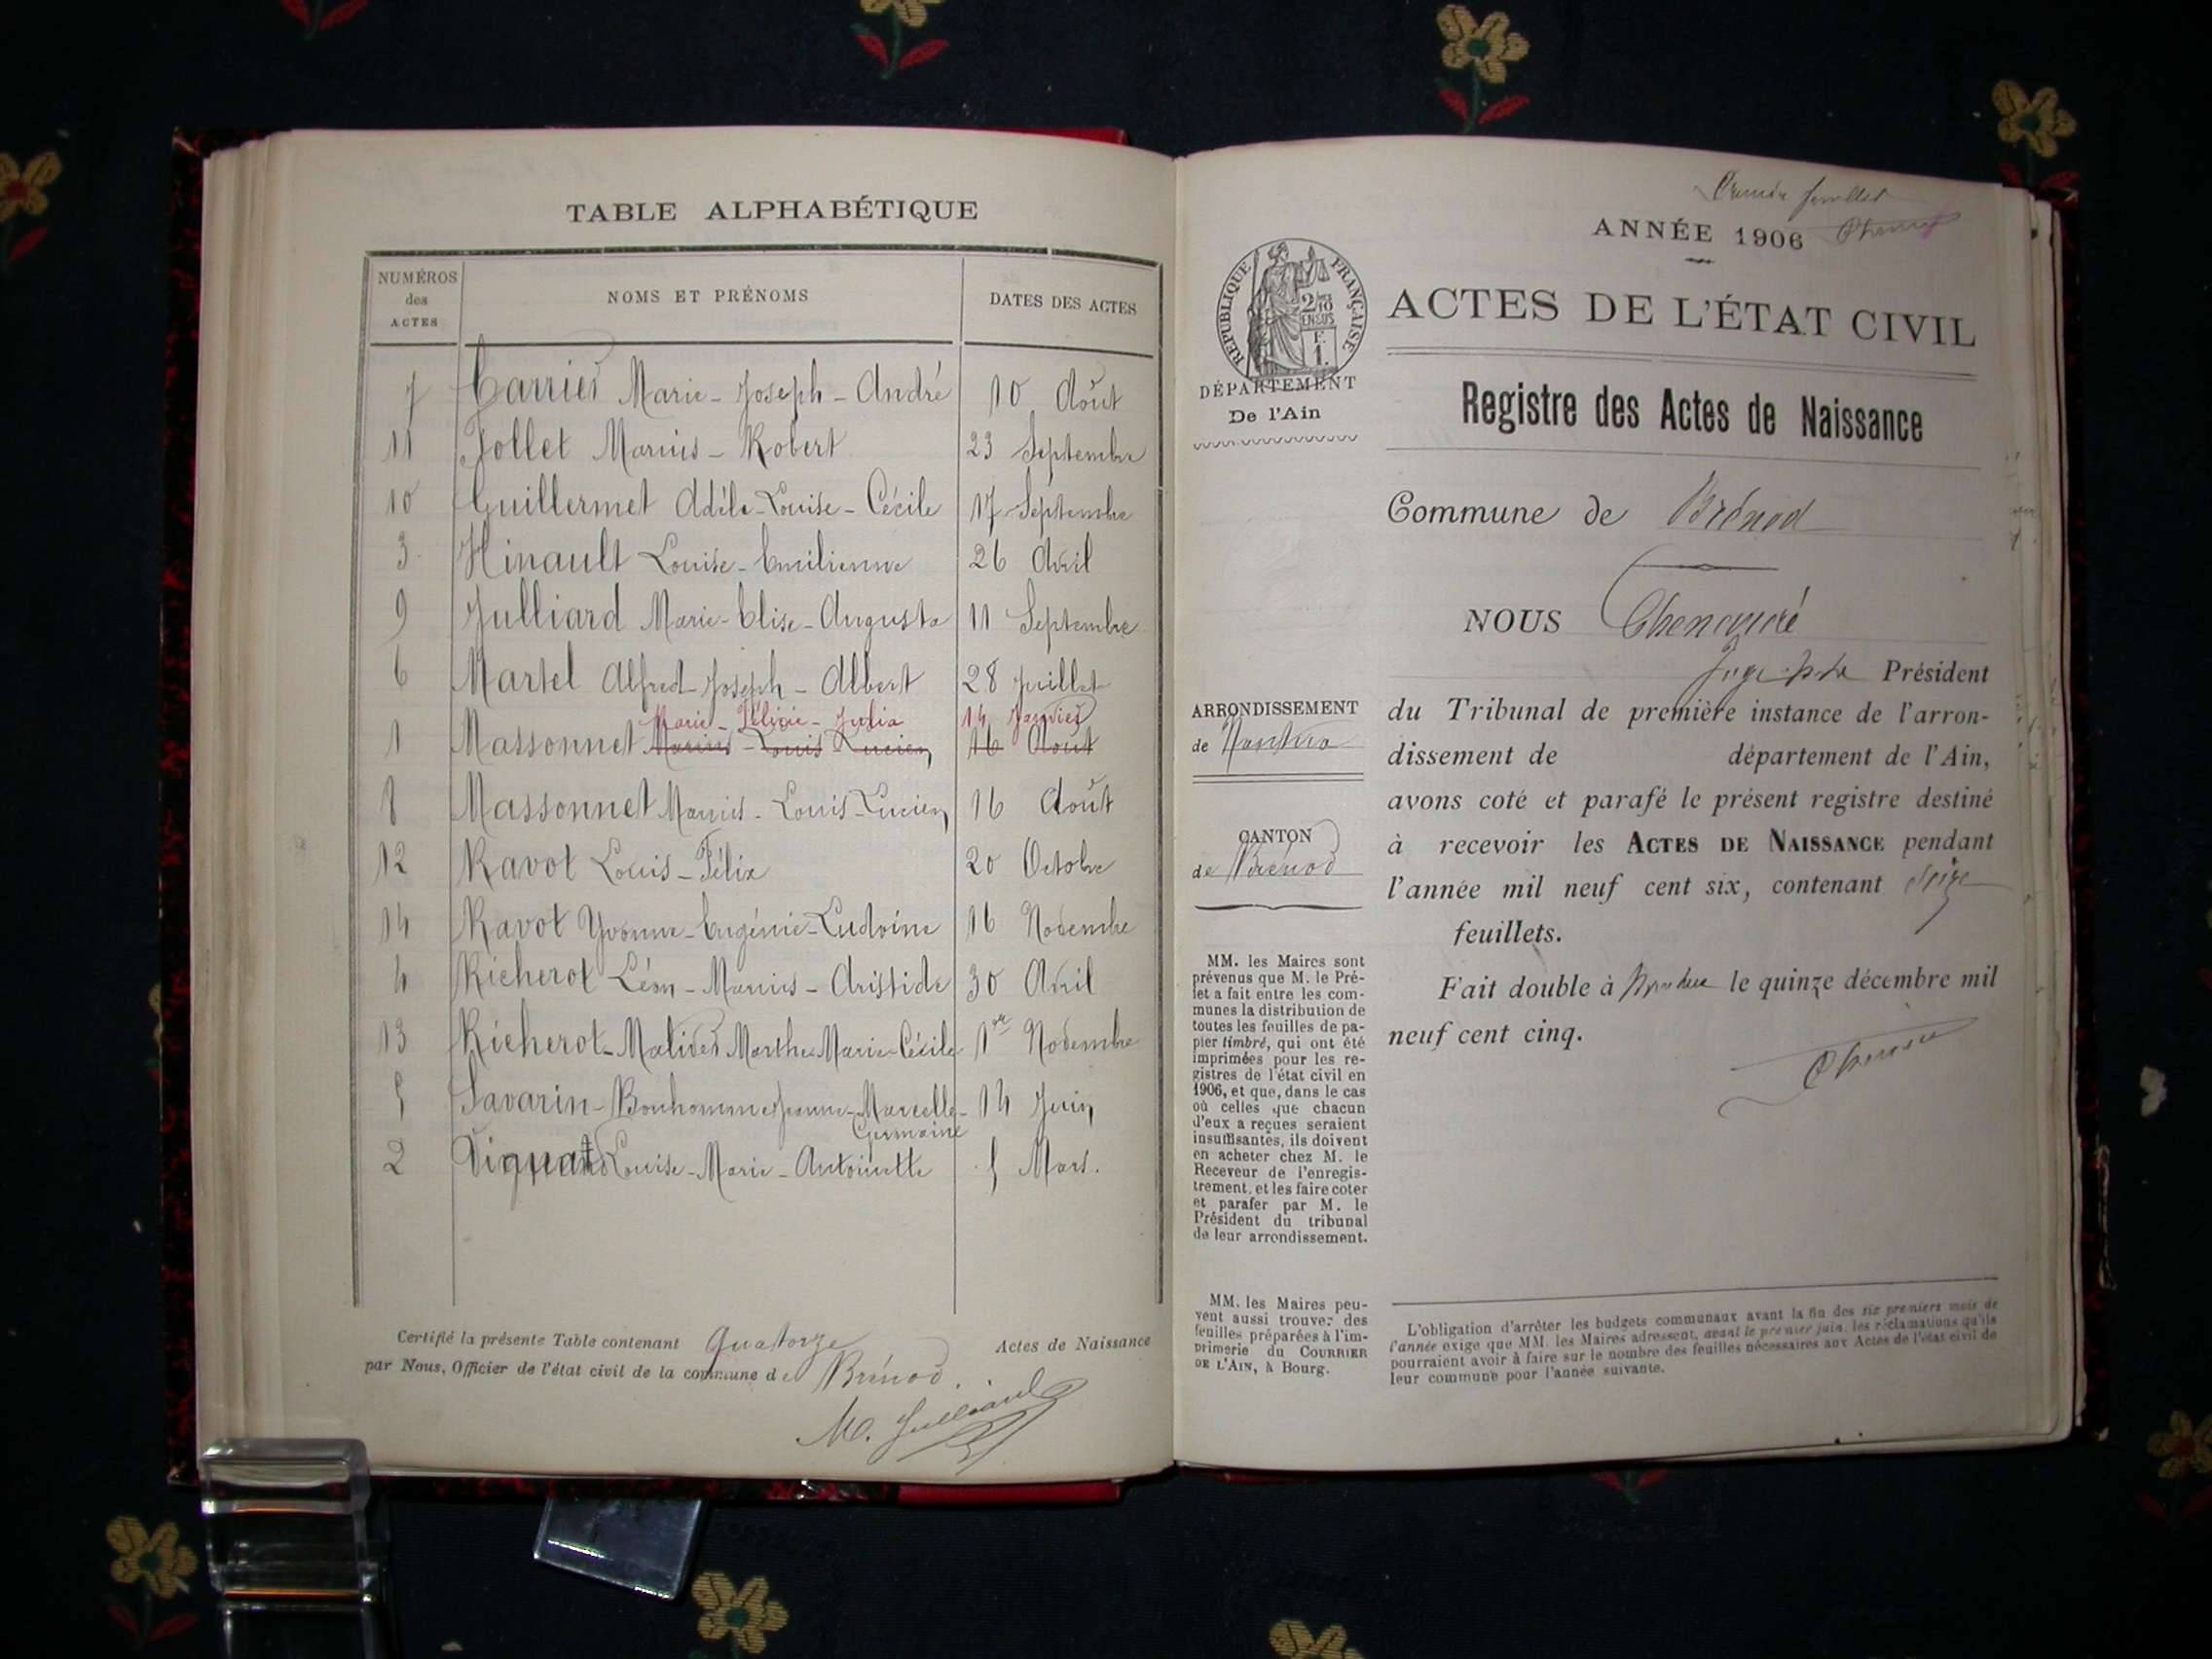 TABLE ALPHABÉTIQUE
NUMÉROS des ACTES NOMS ET PRÉNOMS DATES DES ACTES
7 Carrier Marie-Joseph-André 10 Août
11 Jollet Marius-Robert 23 Septembre
10 Guillermet Adèle-Louise-Cécile 17 Septembre
3 Hinault Louise-Emilienne 26 Avril
9 Julliard Marie-Elise-Augusta 11 Septembre
6 Martel Alfred-Joseph-Albert 28 Juillet
Marie-Félicie-Julia 14 Janvier
1 Massonnet Marius-Louis Lucien 16 Août
8 Massonnet Marius-Louis-Lucien 16 Août
12 Ravot Louis-Félix 20 Octobre
14 Ravot Yvonne-Eugénie-Ludvine 16 Novembre
4 Richerot Léon-Marius-Aristide 30 Avril
13 Richerot-Malivers Marthe Marie-Cécile 1er Novembre
5 Savarin-Bonhomme Jeanne-Marcelle- 14 Juin
Germaine
2 Louise-Marie-Antoinette 5 Mars.
Certifié la présente Table contenant Quatorze Actes de Naissance
par Nous, Officier de l'état civil de la commune de Brénod.
M. Julliard
Premier feuillet
ANNÉE 1906
RÉPUBLIQUE FRANÇAISE
2/10 EN SUS
F. 1.
ACTES DE L'ÉTAT CIVIL
DÉPARTEMENT
De l'Ain
Registre des Actes de Naissance
Commune de Brénod
NOUS
Président
ARRONDISSEMENT
de Nantua
du Tribunal de première instance de l'arron-
dissement de département de l'Ain,
avons coté et parafé le présent registre destiné
à recevoir les ACTES DE NAISSANCE pendant
l'année mil neuf cent six, contenant seize
feuillets.
CANTON
de Brénod
Fait double à Nantua le quinze décembre mil
neuf cent cinq.
MM. les Maires sont
prévenus que M. le Pré-
fet a fait entre les com-
munes la distribution de
toutes les feuilles de pa-
pier timbré, qui ont été
imprimées pour les re-
gistres de l'état civil en
1906, et que, dans le cas
où celles que chacun
d'eux a reçues seraient
insuffisantes, ils doivent
en acheter chez M. le
Receveur de l'enregis-
trement, et les faire coter
et parafer par M. le
Président du tribunal
de leur arrondissement.
MM. les Maires peu-
vent aussi trouver des
feuilles préparées à l'im-
primerie du COURRIER
DE L'AIN, à Bourg.
L'obligation d'arrêter les budgets communaux avant la fin des six premiers mois de
l'année exige que MM. les Maires adressent, avant le premier juin, les réclamations qu'ils
pourraient avoir à faire sur le nombre des feuilles nécessaires aux Actes de l'état civil de
leur commune pour l'année suivante.